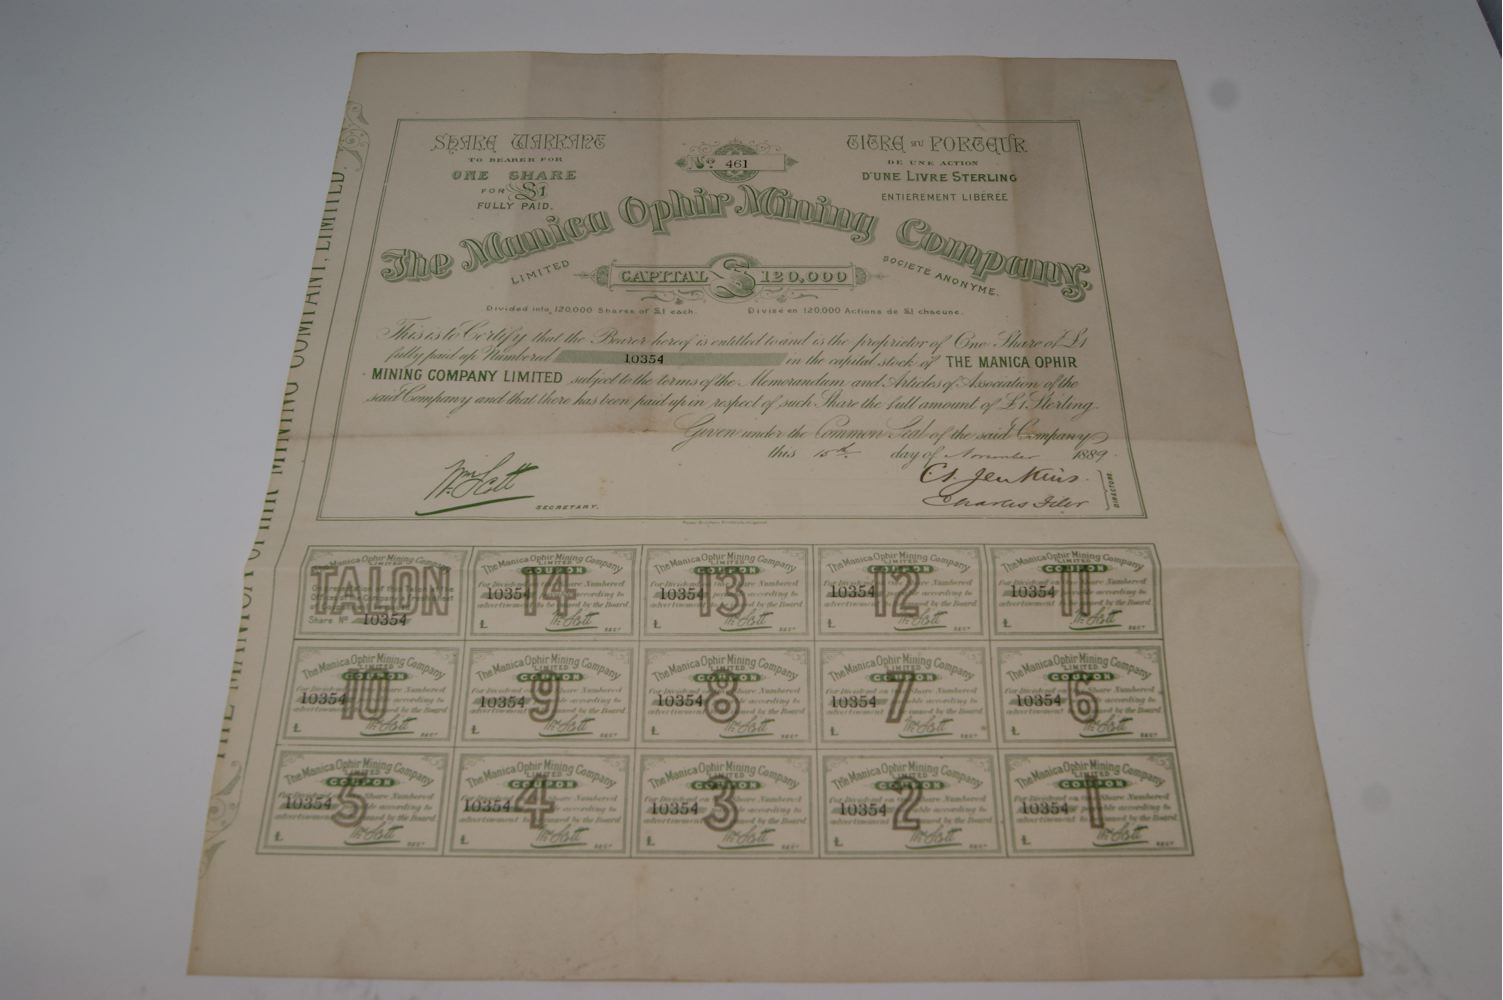 SHARE WARRANT
TO BEARER FOR
ONE SHARE
FOR £1
FULLY PAID.
No 461
TITRE AU PORTEUR
DE UNE ACTION
D'UNE LIVRE STERLING
ENTIEREMENT LIBÉRÉE
The Manica Ophir Mining Company.
LIMITED
CAPITAL £ 120,000
SOCIETE ANONYME.
Divided into 120,000 Shares of £1 each.
Divisé en 120,000 Actions de £1 chacune.
This is to Certify that the Bearer hereof is entitled to and is the proprietor of One Share of £1
fully paid up Numbered 10354 in the capital stock of THE MANICA OPHIR
MINING COMPANY LIMITED subject to the terms of the Memorandum and Articles of Association of the
said Company and that there has been paid up in respect of such Share the full amount of £1. Sterling.
Given under the Common Seal of the said Company
this 15th day of November 1889.
Wm Scott
SECRETARY.
C. Jenkins.
Charles
DIRECTORS
THE MANICA OPHIR MINING COMPANY, LIMITED.
The Manica Ophir Mining Company
LIMITED
TALON
Share No 10354
The Manica Ophir Mining Company
LIMITED
COUPON
14
For Dividend on Share Numbered
10354 according to
advertisement to be issued by the Board.
£ Wm Scott
SECY
The Manica Ophir Mining Company
LIMITED
COUPON
13
For Dividend on Share Numbered
10354 according to
advertisement issued by the Board.
£ Wm Scott
SECY
The Manica Ophir Mining Company
LIMITED
COUPON
12
For Dividend on Share Numbered
10354 according to
advertisement issued by the Board.
£ Wm Scott
SECY
The Manica Ophir Mining Company
LIMITED
COUPON
11
For Dividend on Share Numbered
10354 according to
advertisement issued by the Board.
£ Wm Scott
SECY
The Manica Ophir Mining Company
LIMITED
COUPON
10
For Dividend on Share Numbered
10354 according to
advertisement issued by the Board.
£ Wm Scott
SECY
The Manica Ophir Mining Company
LIMITED
COUPON
9
For Dividend on Share Numbered
10354 according to
advertisement issued by the Board.
£ Wm Scott
SECY
The Manica Ophir Mining Company
LIMITED
COUPON
8
For Dividend on Share Numbered
10354 according to
advertisement issued by the Board.
£ Wm Scott
SECY
The Manica Ophir Mining Company
LIMITED
COUPON
7
For Dividend on Share Numbered
10354 according to
advertisement issued by the Board.
£ Wm Scott
SECY
The Manica Ophir Mining Company
LIMITED
COUPON
6
For Dividend on Share Numbered
10354 according to
advertisement issued by the Board.
£ Wm Scott
SECY
The Manica Ophir Mining Company
LIMITED
COUPON
5
For Dividend on Share Numbered
10354 payable according to
advertisement issued by the Board.
£ Wm Scott
SECY
The Manica Ophir Mining Company
LIMITED
COUPON
4
For Dividend on Share Numbered
10354 payable according to
advertisement issued by the Board.
£ Wm Scott
SECY
The Manica Ophir Mining Company
LIMITED
COUPON
3
For Dividend on Share Numbered
10354 payable according to
advertisement issued by the Board.
£ Wm Scott
SECY
The Manica Ophir Mining Company
LIMITED
COUPON
2
For Dividend on Share Numbered
10354 payable according to
advertisement issued by the Board.
£ Wm Scott
SECY
The Manica Ophir Mining Company
LIMITED
COUPON
1
For Dividend on Share Numbered
10354 payable according to
advertisement issued by the Board.
£ Wm Scott
SECY